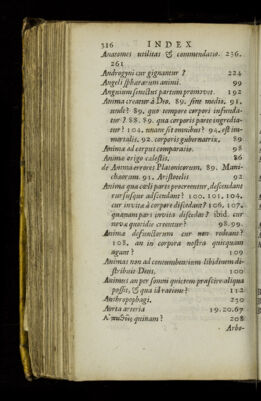 316 INDEX
Anatomes utilitas & commendatio. 236.
261
Androgyni cur gignantur? 224
Angeli sphærarum animi. 99
Anguium senectus partum promovet. 192
Anima creatur à Deo. 89. sine medio. 91.
unde? 89. quo tempore corpori infunda-
tur? 88. 89. qua corporis parte ingredia-
tur? 104. unane sit omnibus? 94. est im-
mortalis. 92. corporis gubernatrix. 89
Animæ ad corpus comparatio. 98
Animæ origo cælestis. 86
de Anima errores Platonicorum. 89. Mani-
chæorum. 91. Aristotelis 92
Anima qua cæli parte procreentur, descendant
rursusque adscendant? 100. 101. 104.
cur invitæ à corpore discedant? 106. 107.
quænam pars invita discedat? ibid. cur
novæ quotidie creentur? 98. 99.
Animæ defunctorum cur non redeant?
108. an in corpora nostra quicquam
agant? 109
Animas non ad concumbentium libidinem di-
stribuit Deus. 100
Animus an per somni quietem præscire aliqua
possit, & qua id ratione? 112
Anthropophagi. 230
Aorta arteria 19. 20. 67
quinam? 208
Arbo-